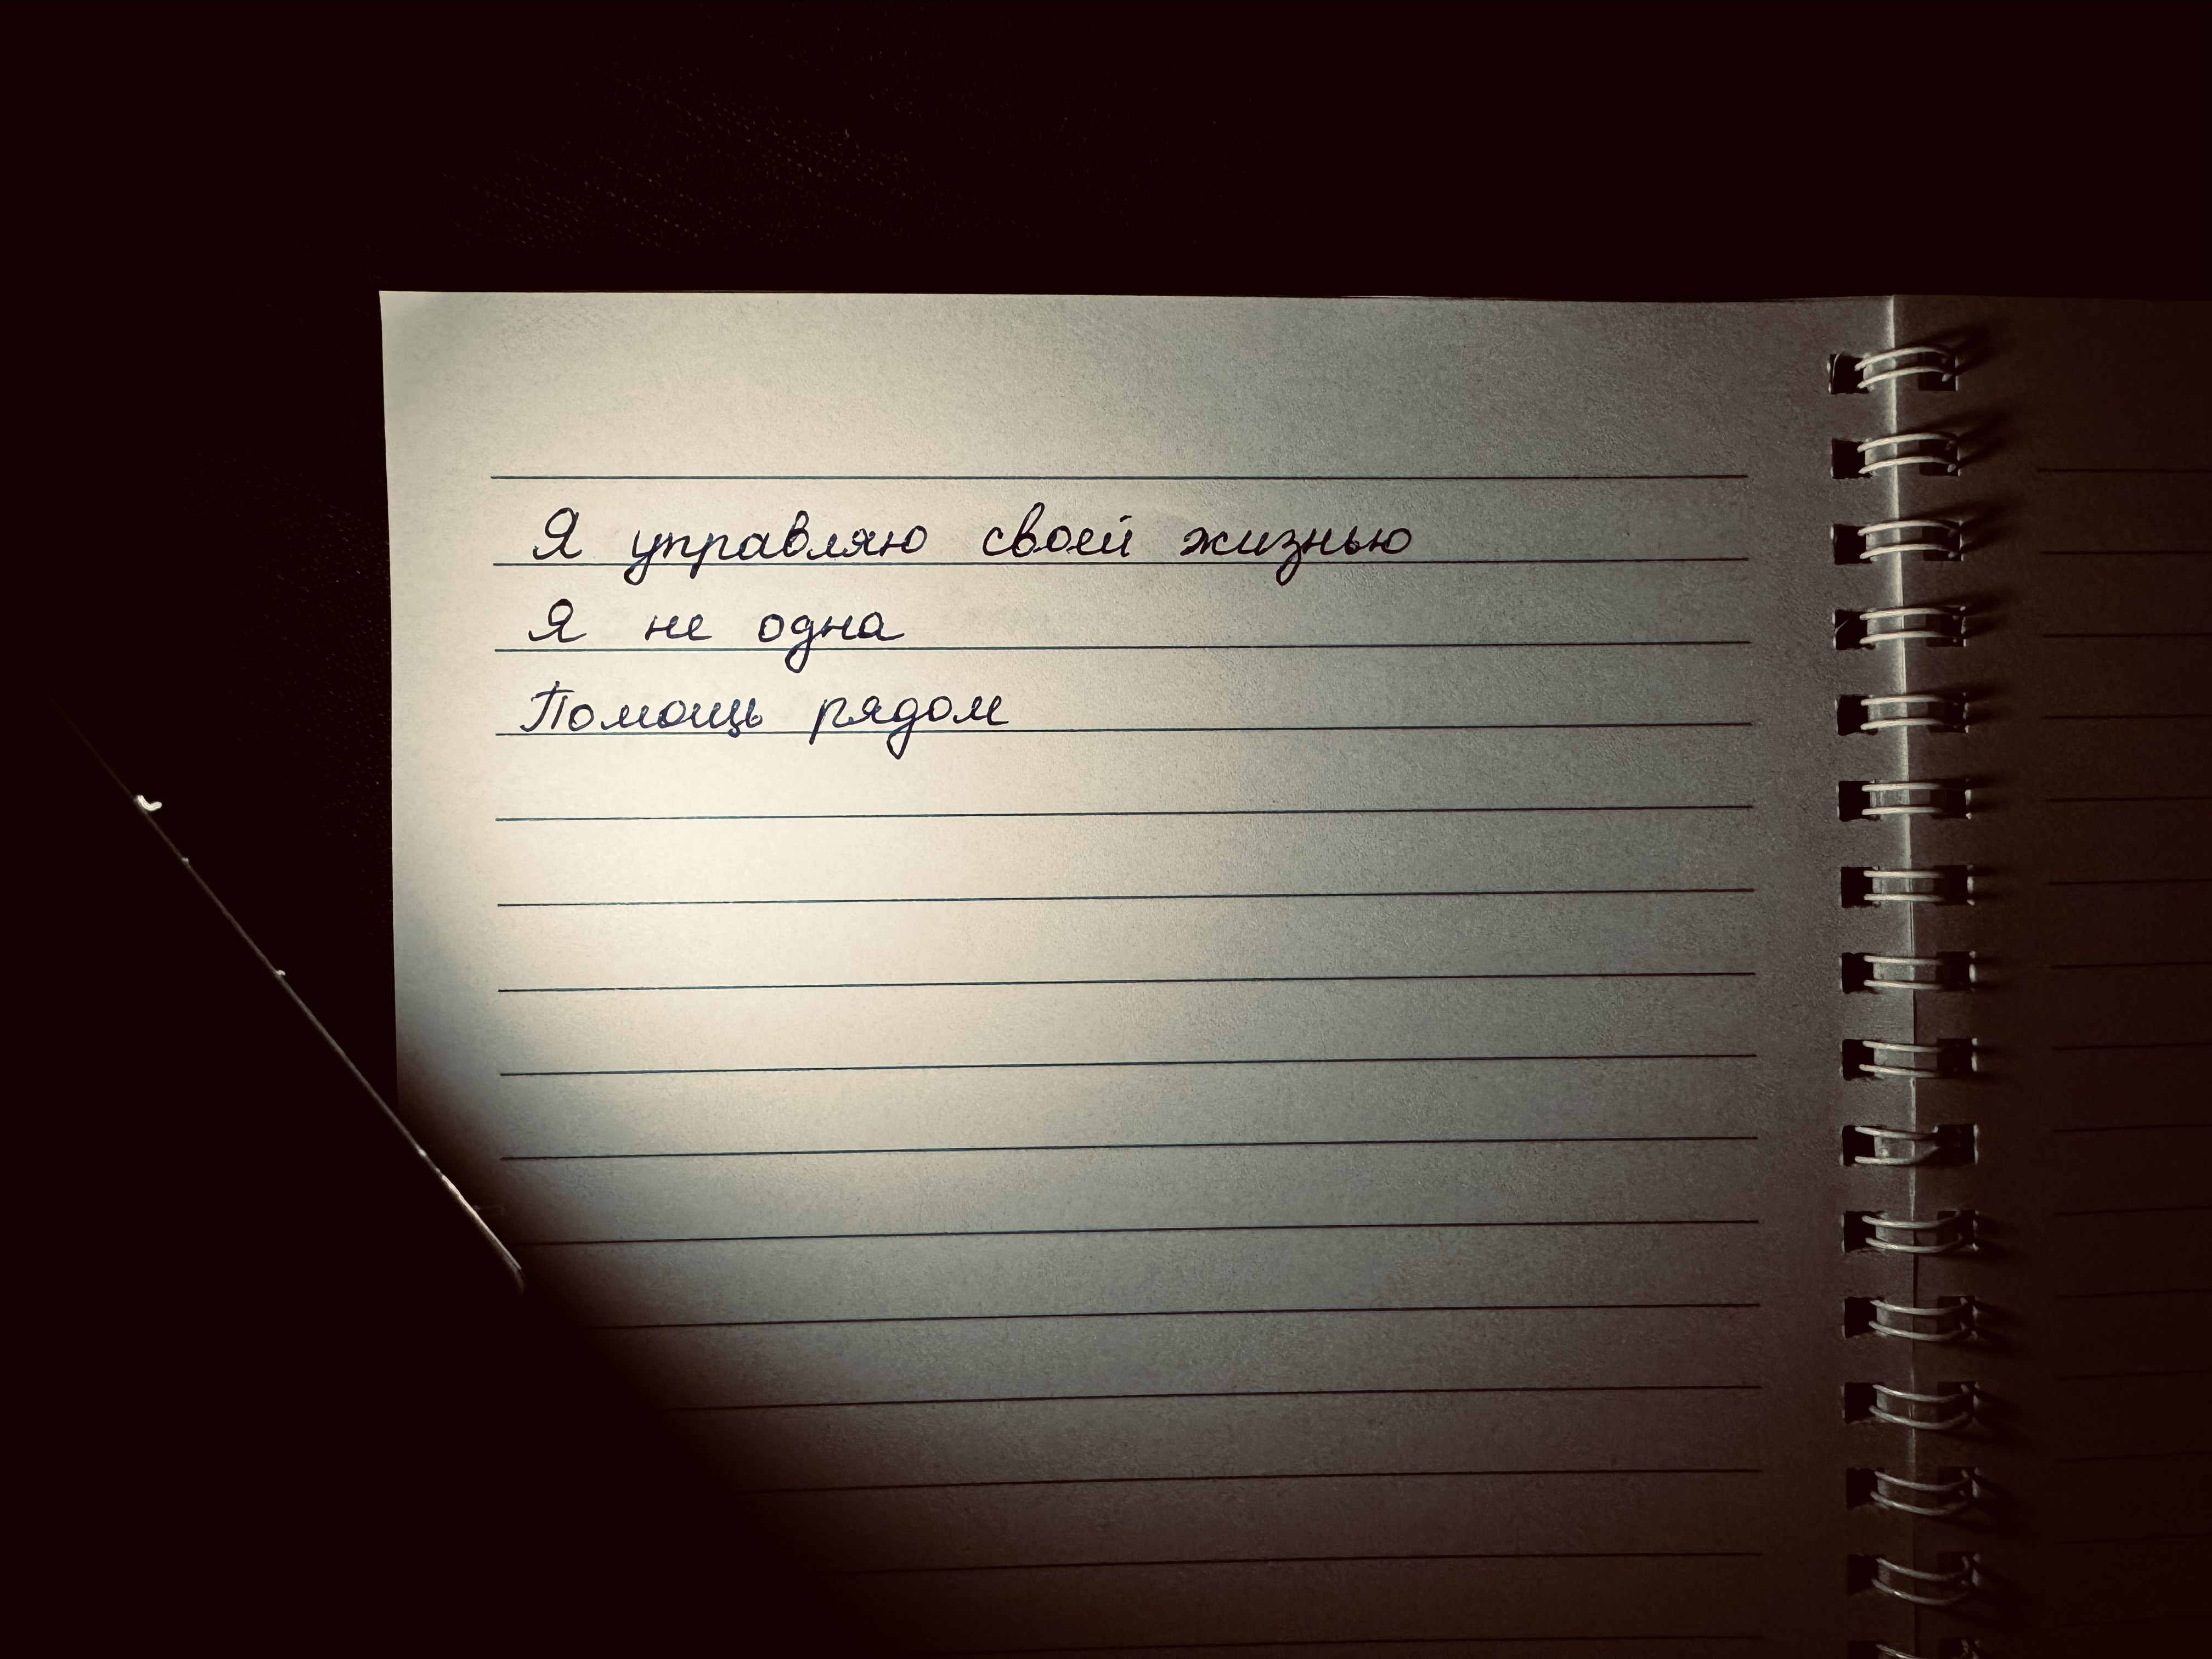 Я управляю своей жизнью
Я не одна
Помощь рядом